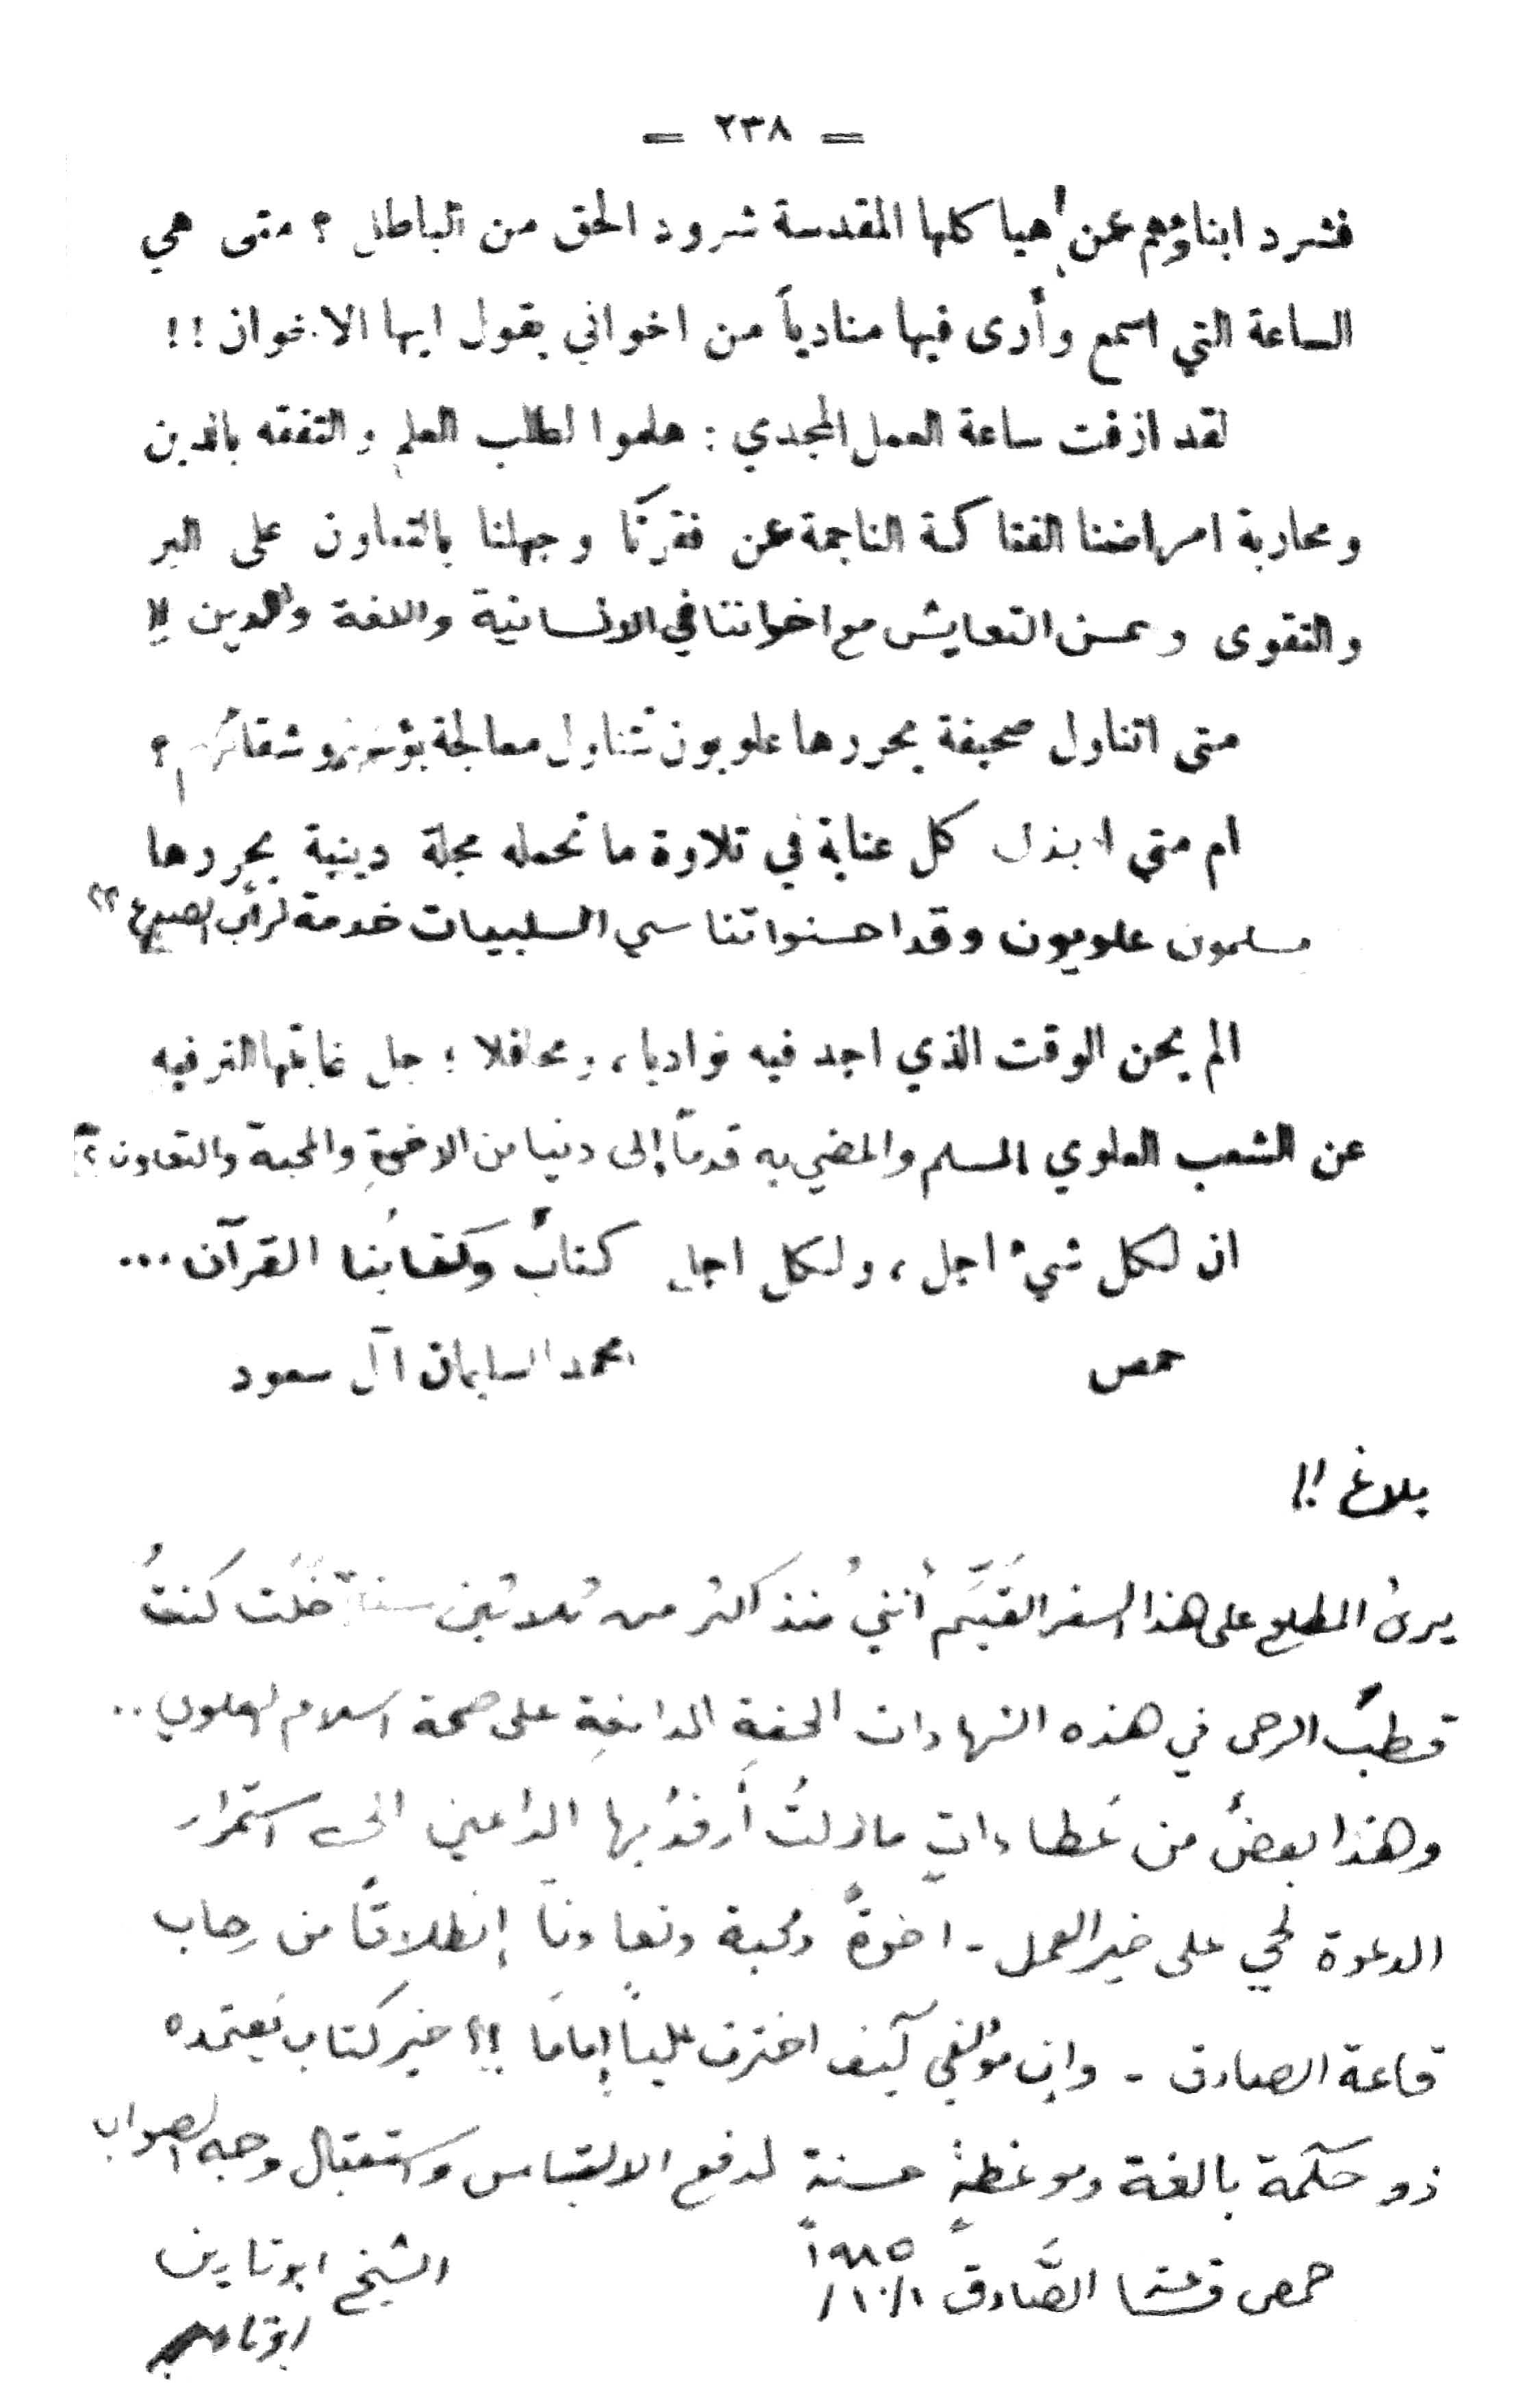 = ٢٣٨ =
فشرد ابناؤهم عن هياكلها المقدسة شرود الحق من الباطل ؟ متى هي
الساعة التي اسمع وأرى فيها منادياً من اخواني يقول ايها الاخوان !!
لقد ازفت ساعة العمل المجدي : هلموا لطلب العلم والتفقه بالدين
ومحاربة امراضنا الفتاكة الناجمة عن فقرنا وجهلنا بالتعاون على البر
والتقوى وحسن التعايش مع اخواننا في الانسانية واللغة والدين
متى اتناول صحيفة يحررها علويون تتناول معالجة بؤسهم وشقائهم ؟
ام متى ابذل كل عناية في تلاوة ما تحمله مجلة دينية يحررها
مسلمون علويون وقد احسنوا تناسي السلبيات خدمة لرأب الصدع ؟؟
الم يحن الوقت الذي اجد فيه نواديا ، ومحافلا ؛ جل غايتها الترفيه
عن الشعب العلوي المسلم والمضي به قدماً إلى دنيا من الاخوةِ والمحبة والتعاون ؟
ان لكل شيء اجل ، ولكل اجل كتابٌ وكتابُنا القرآن ...
حمص محمد السليمان آل سعود
بلاغ !!
يرىُ المطلع على هذا السفر القَيَّم أنني منذ اكثر من ثلاثين سنة خَلَت كنتُ
قطبَ الرحى في هذه الشهادات الحقةِ الدامغة على صحة اسلام العلوي ..
وهذا بعضٌ من عَطاءاتٍ مازلتُ أرفدُ بها الداعين الى استمرار
الدعوة لحي على خير العمل - اخوةً ومحبة وتعاونا إنطلاقاً من رحاب
قاعة الصادق - وإن مؤلفي كيف اخترت علياً إماما !؟ خير كتاب يَعتمده
ذو حكمة بالغة وموعظةٍ حسنةٍ لدفع الالتباس واستقبال وجه الصواب
حمص قاعة الصَّادق ١/١٠/ ١٩٨٥ الشيخ ابو